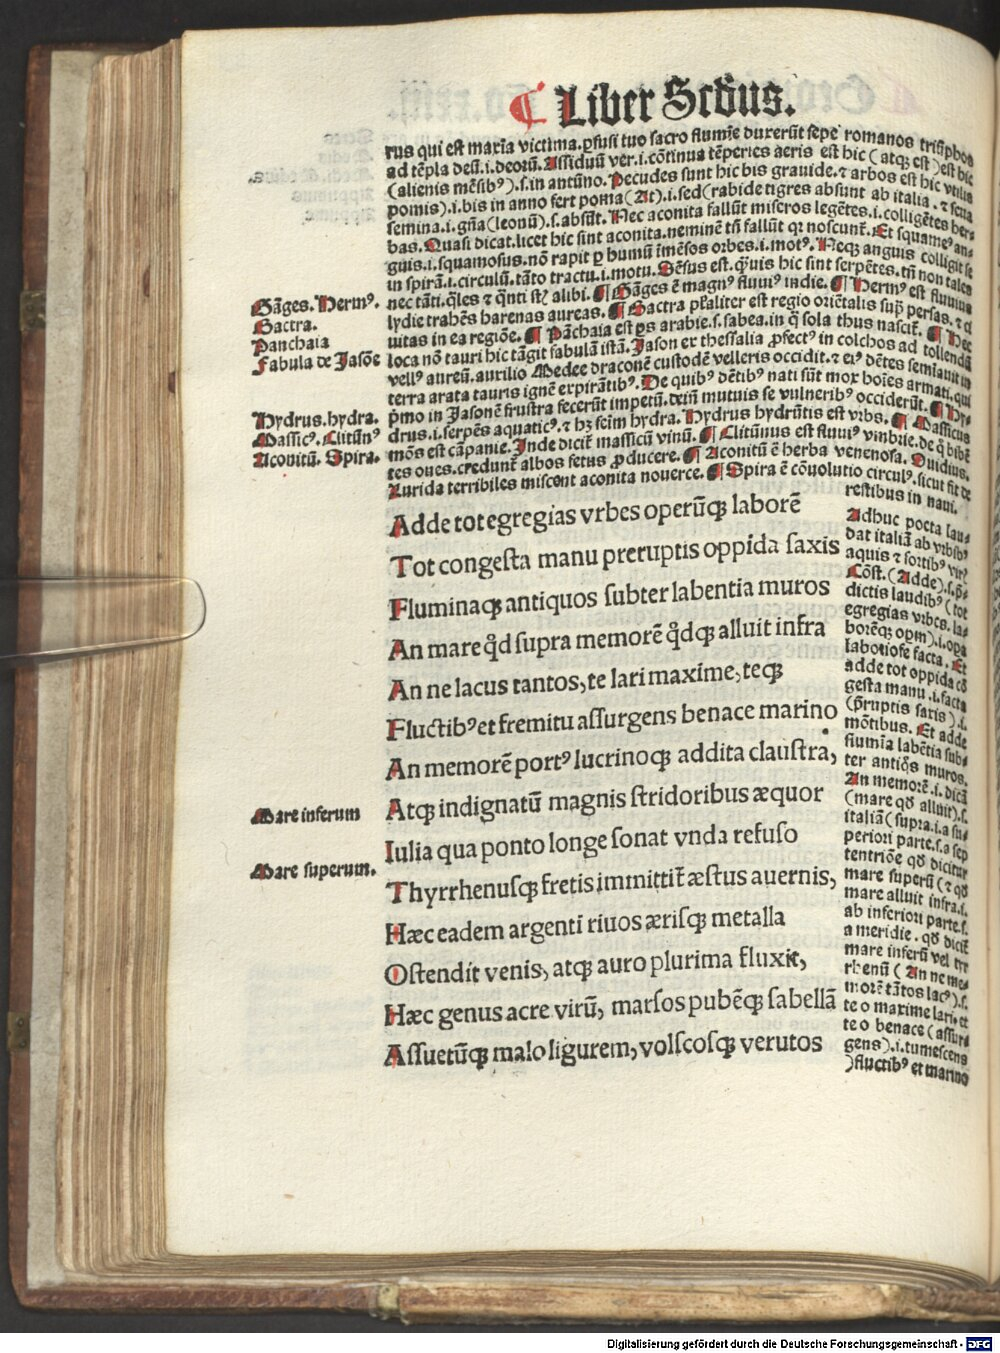 ¶ Liber Scďus.
rus qui est maxĩa victima. ꝑfusi tuo sacro flumĩe duxerũt sepe romanos triũphos
ad tẽpla deũ .i. deorũ. Assiduũ ver .i. cõtinua tẽperies aeris est hic (atqꝫ est) est hic
(alienis mẽsibꝰ) .s. in autũno. Pecudes sunt hic bis grauide. ⁊ arbos est hic vtilis
pomis) .i. bis in anno fert poma (At) .i. sed (rabide tigres absunt ab italia. ⁊ seua
semina .i. gña (leonũ) .s. absũt. Nec aconita fallũt miseros legẽtes .i. colligẽtes her-
bas. Quasi dicat. licet hic sint aconita. neminẽ tñ fallũt qꝛ noscunt᷑. Et squameꝰ an-
guis .i. squamosus. nõ rapit ꝑ humũ ĩmẽsos orbes .i. motꝰ. Neqꝫ anguis colligit se
in spirã .i. circulũ. tãto tractu .i. motu. Sẽsus est. qͫuis hic sint serpẽtes. tñ non tales
nec tãti. q̃les ⁊ q̃nti st̃ alibi. ¶ Gãges ẽ magnꝰ fluuiꝰ indie. ¶ Hermꝰ est fluuius
lydie trahẽs harenas aureas. ¶ Bactra pͣlaliter est regio oriẽtalis supͣ persas. ⁊ ci
uitas in ea regiõe. ¶ Pãchaia est ꝑs arabie .s. sabea. in q̃ sola thus nascit᷑. ¶ Hec
loca nõ tauri hic tãgit fabulã istã. Jason ex thessalia ꝓfectꝰ in colchos ad tollendũ
vellꝰ aureũ. auxilio Medee draconẽ custodẽ velleris occidit. ⁊ eiꝰ dẽtes semĩauit in
terra arata tauris ignẽ expirãtibꝰ. De quibꝰ dẽtibꝰ nati sũt mox hoĩes armati. qui
pͥmo in Jasonẽ frustra fecerũt impetũ. deĩñ mutuis se vulneribꝰ occiderũt. ¶ Hy-
drus .i. serpẽs aquaticꝰ. ⁊ hꝫ feĩm hydra. Hydrus hydrũtis est vrbs. ¶ Massicus
mõs est cãpanie. Inde dicit᷑ massicũ vinũ. ¶ Clitũnus est fluuiꝰ vmbrie. de q̃ bibẽ
tes oues. credunt᷑ albos fetus ꝓducere. ¶ Aconitũ ẽ herba venenosa. Ouidius.
Lurida terribiles miscent aconita nouerce. ¶ Spira ẽ cõuolutio circulꝰ. sicut fit de
restibus in naui.
Gãges. Hermꝰ.
Bactra.
Panchaia
Fabula de Jasõe
Hydrus. hydra.
Massicꝰ. Clitũnꝰ
Aconitũ. Spira.
Adde tot egregias vrbes operũqꝫ laborẽ
Tot congesta manu preruptis oppida saxis
Fluminaqꝫ antiquos subter labentia muros
An mare qͩd supra memorẽ qͩdqꝫ alluit infra
An ne lacus tantos, te lari maxime, teqꝫ
Fluctibꝰ et fremitu assurgens benace marino
An memorẽ portꝰ lucrinoqꝫ addita claustra,
Atqꝫ indignatũ magnis stridoribus æquor
Iulia qua ponto longe sonat vnda refuso
Thyrrhenusqꝫ fretis immittit᷑ æstus auernis,
Hæc eadem argenti riuos ærisqꝫ metalla
Ostendit venis, atqꝫ auro plurima fluxit,
Hæc genus acre virũ, marsos pubẽqꝫ sabellã
Assuetũqꝫ malo ligurem, volscosqꝫ verutos
Mare inferum
Mare superum.
Adhuc poeta lau-
dat italiã ab vrbibꝰ
aquis ⁊ fortibꝰ virꝭ
Cõst. (Adde) .s. p̃-
dictis laudibꝰ (tot
egregias vrbes. la-
borẽqꝫ opm̃) .i. opa
laboriose facta. Et
adde tot oppida cõ
gesta manu .i. facta
(p̃ruptis saxis) .i.
mõtibus. Et adde
flumĩa labẽtia sub-
ter antiq̃s muros.
An memorẽ .i. dicã
(mare qď alluit) .s.
italiã (supra .i. a su-
periori parte .s. a sep
tentriõe qď dicitur
mare superũ (⁊ qď
mare alluit infra .i.
ab inferiori parte .s.
a meridie. qď dicit᷑
mare inferũ vel tyr
rhenũ (An ne me-
morẽ tãtos lacꝰ) .s.
te o maxime lari. et
te o benace (assur-
gens) .i. tumescens
)fluctibꝰ et marino
Digitalisierung gefördert durch die Deutsche Forschungsgemeinschaft - DFG